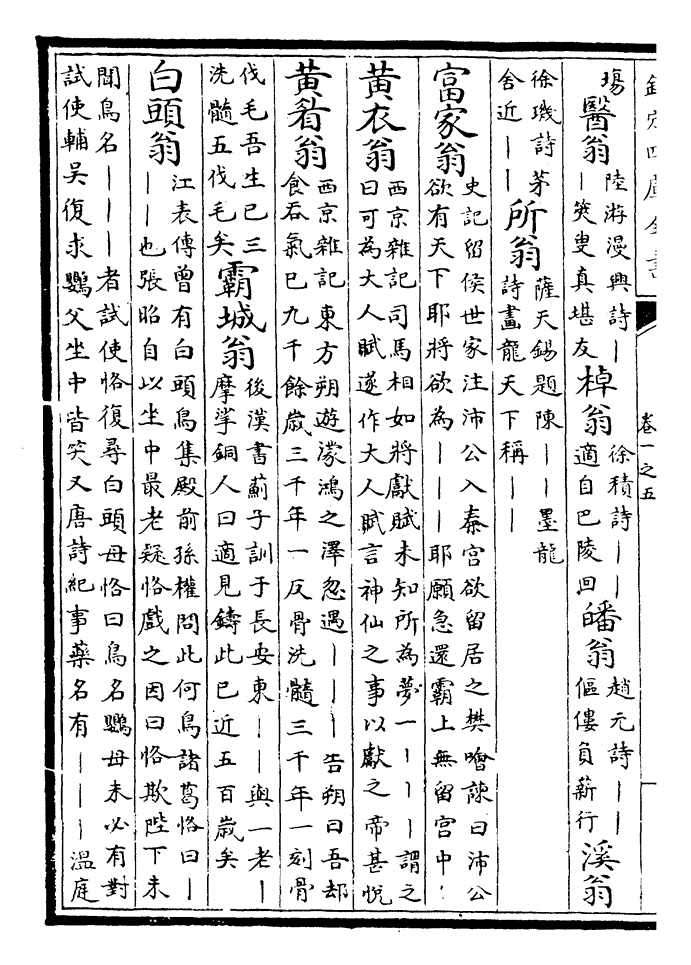 欽定四庫全書 卷一之五
塲 醫翁 陸游漫興詩｜｜笑叟真堪友 棹翁 徐積詩｜｜適自巴陵回 皤翁 趙元詩｜｜傴僂負薪行 溪翁
徐璣詩茅舍近｜｜ 所翁 薩天錫題陳｜｜墨龍詩畫龍天下稱｜｜
富家翁 史記留侯世家注沛公入秦宫欲留居之樊噲諫曰沛公欲有天下耶將欲為｜｜｜耶願急還霸上無留宫中
黄衣翁 西京雜記司馬相如將獻賦未知所為夢一｜｜｜謂之曰可為大人賦遂作大人賦言神仙之事以獻之帝甚悦
黄眉翁 西京雜記東方朔遊濛鴻之澤忽遇｜｜｜告朔曰吾却食吞氣已九千餘歳三千年一反骨洗髓三千年一刻骨
伐毛吾生已三洗髓五伐毛矣 霸城翁 後漢書薊子訓于長安東｜｜與一老｜摩挲銅人曰適見鑄此已近五百歳矣
白頭翁 江表傳曾有白頭鳥集殿前孫權問此何鳥諸葛恪曰｜｜｜也張昭自以坐中最老疑恪戲之因曰恪欺陛下未
聞鳥名｜｜｜者試使恪復尋白頭母恪曰鳥名鸚母未必有對試使輔吴復求鸚父坐中皆笑又唐詩紀事藥名有｜｜｜温庭